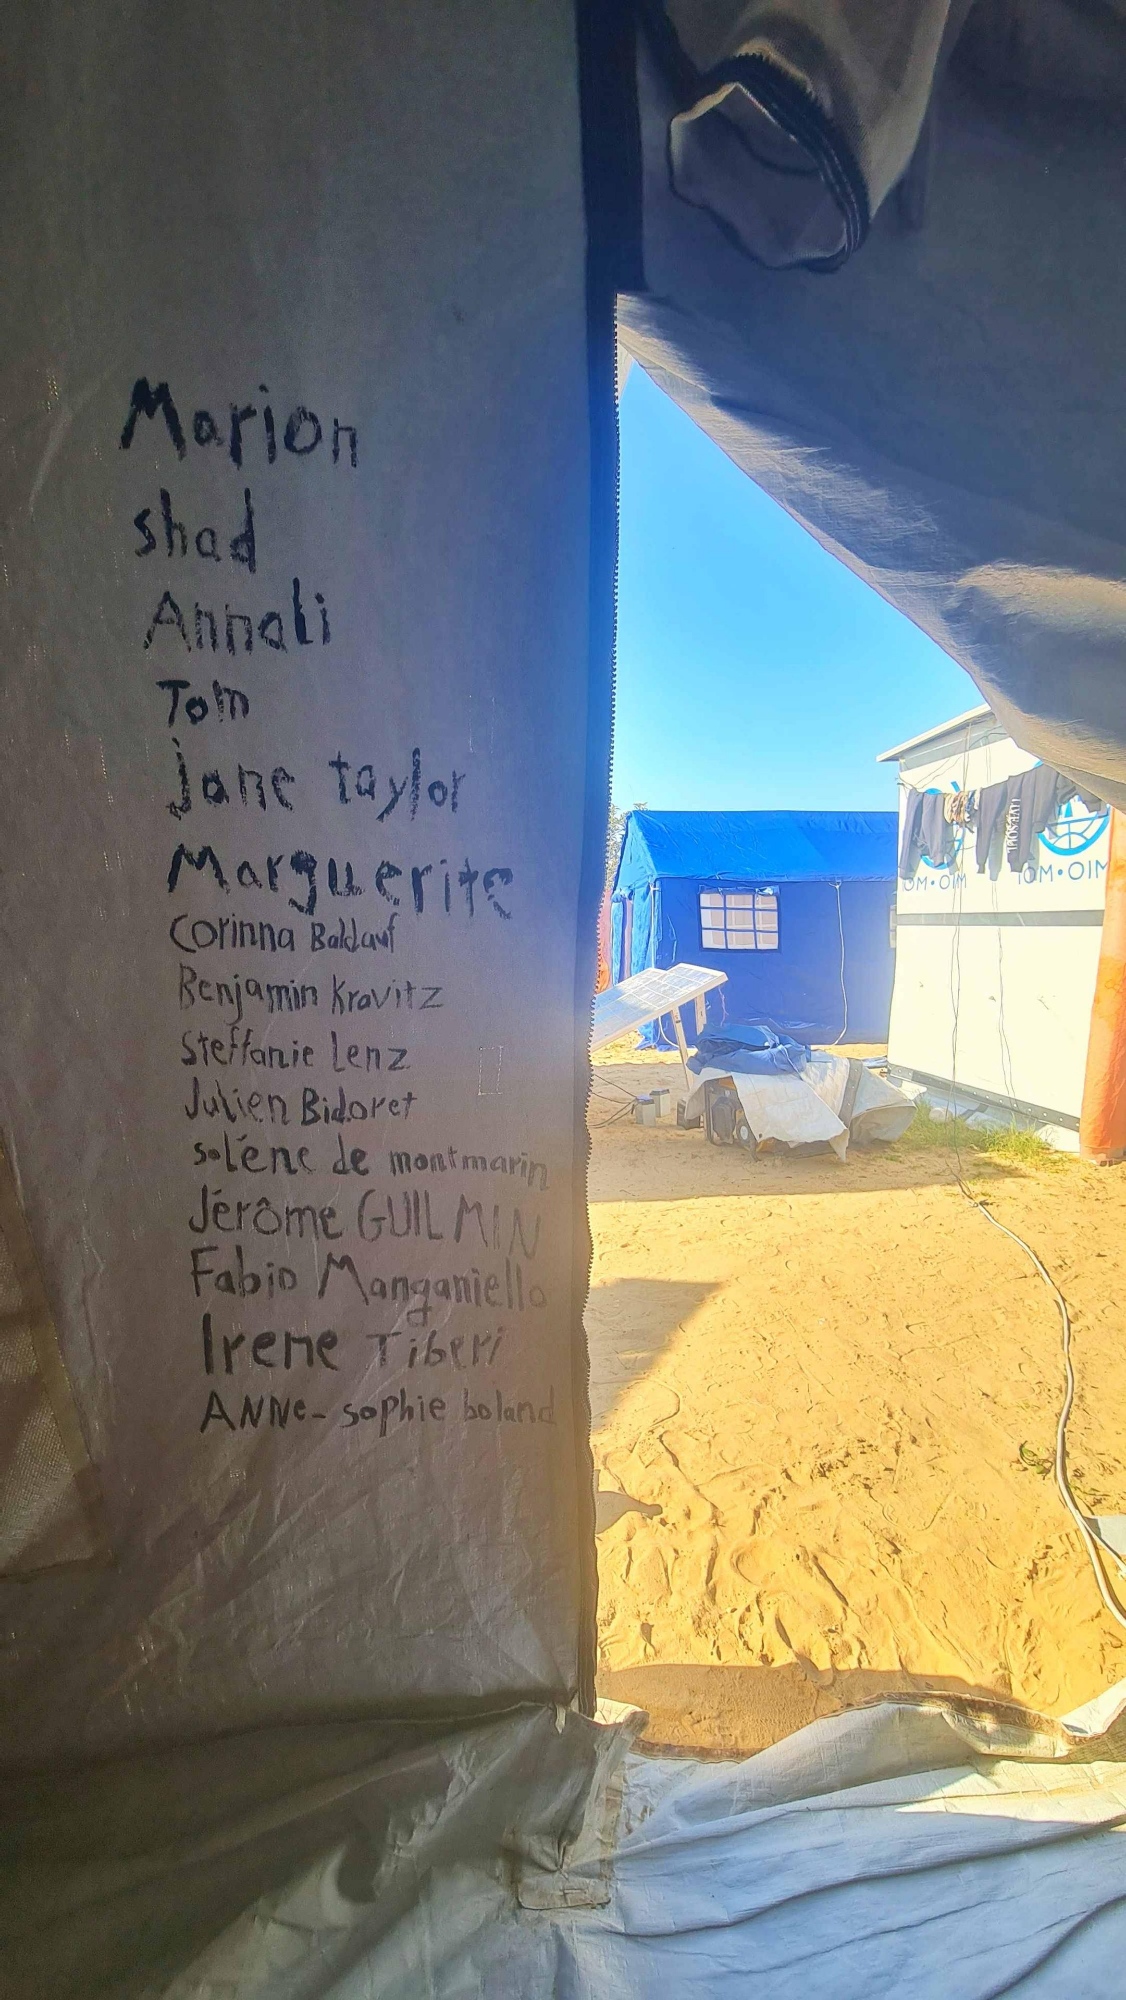 Marion
shad
Annali
Tom
jane taylor
Marguerite
Corinna Baldauf
Benjamin Kravitz
Steffanie Lenz
Julien Bidoret
solène de montmarin
Jérôme GUILMIN
Fabio Manganiello
Irene Tiberi
ANNe-sophie boland
IOM•OIM
IOM•OIM